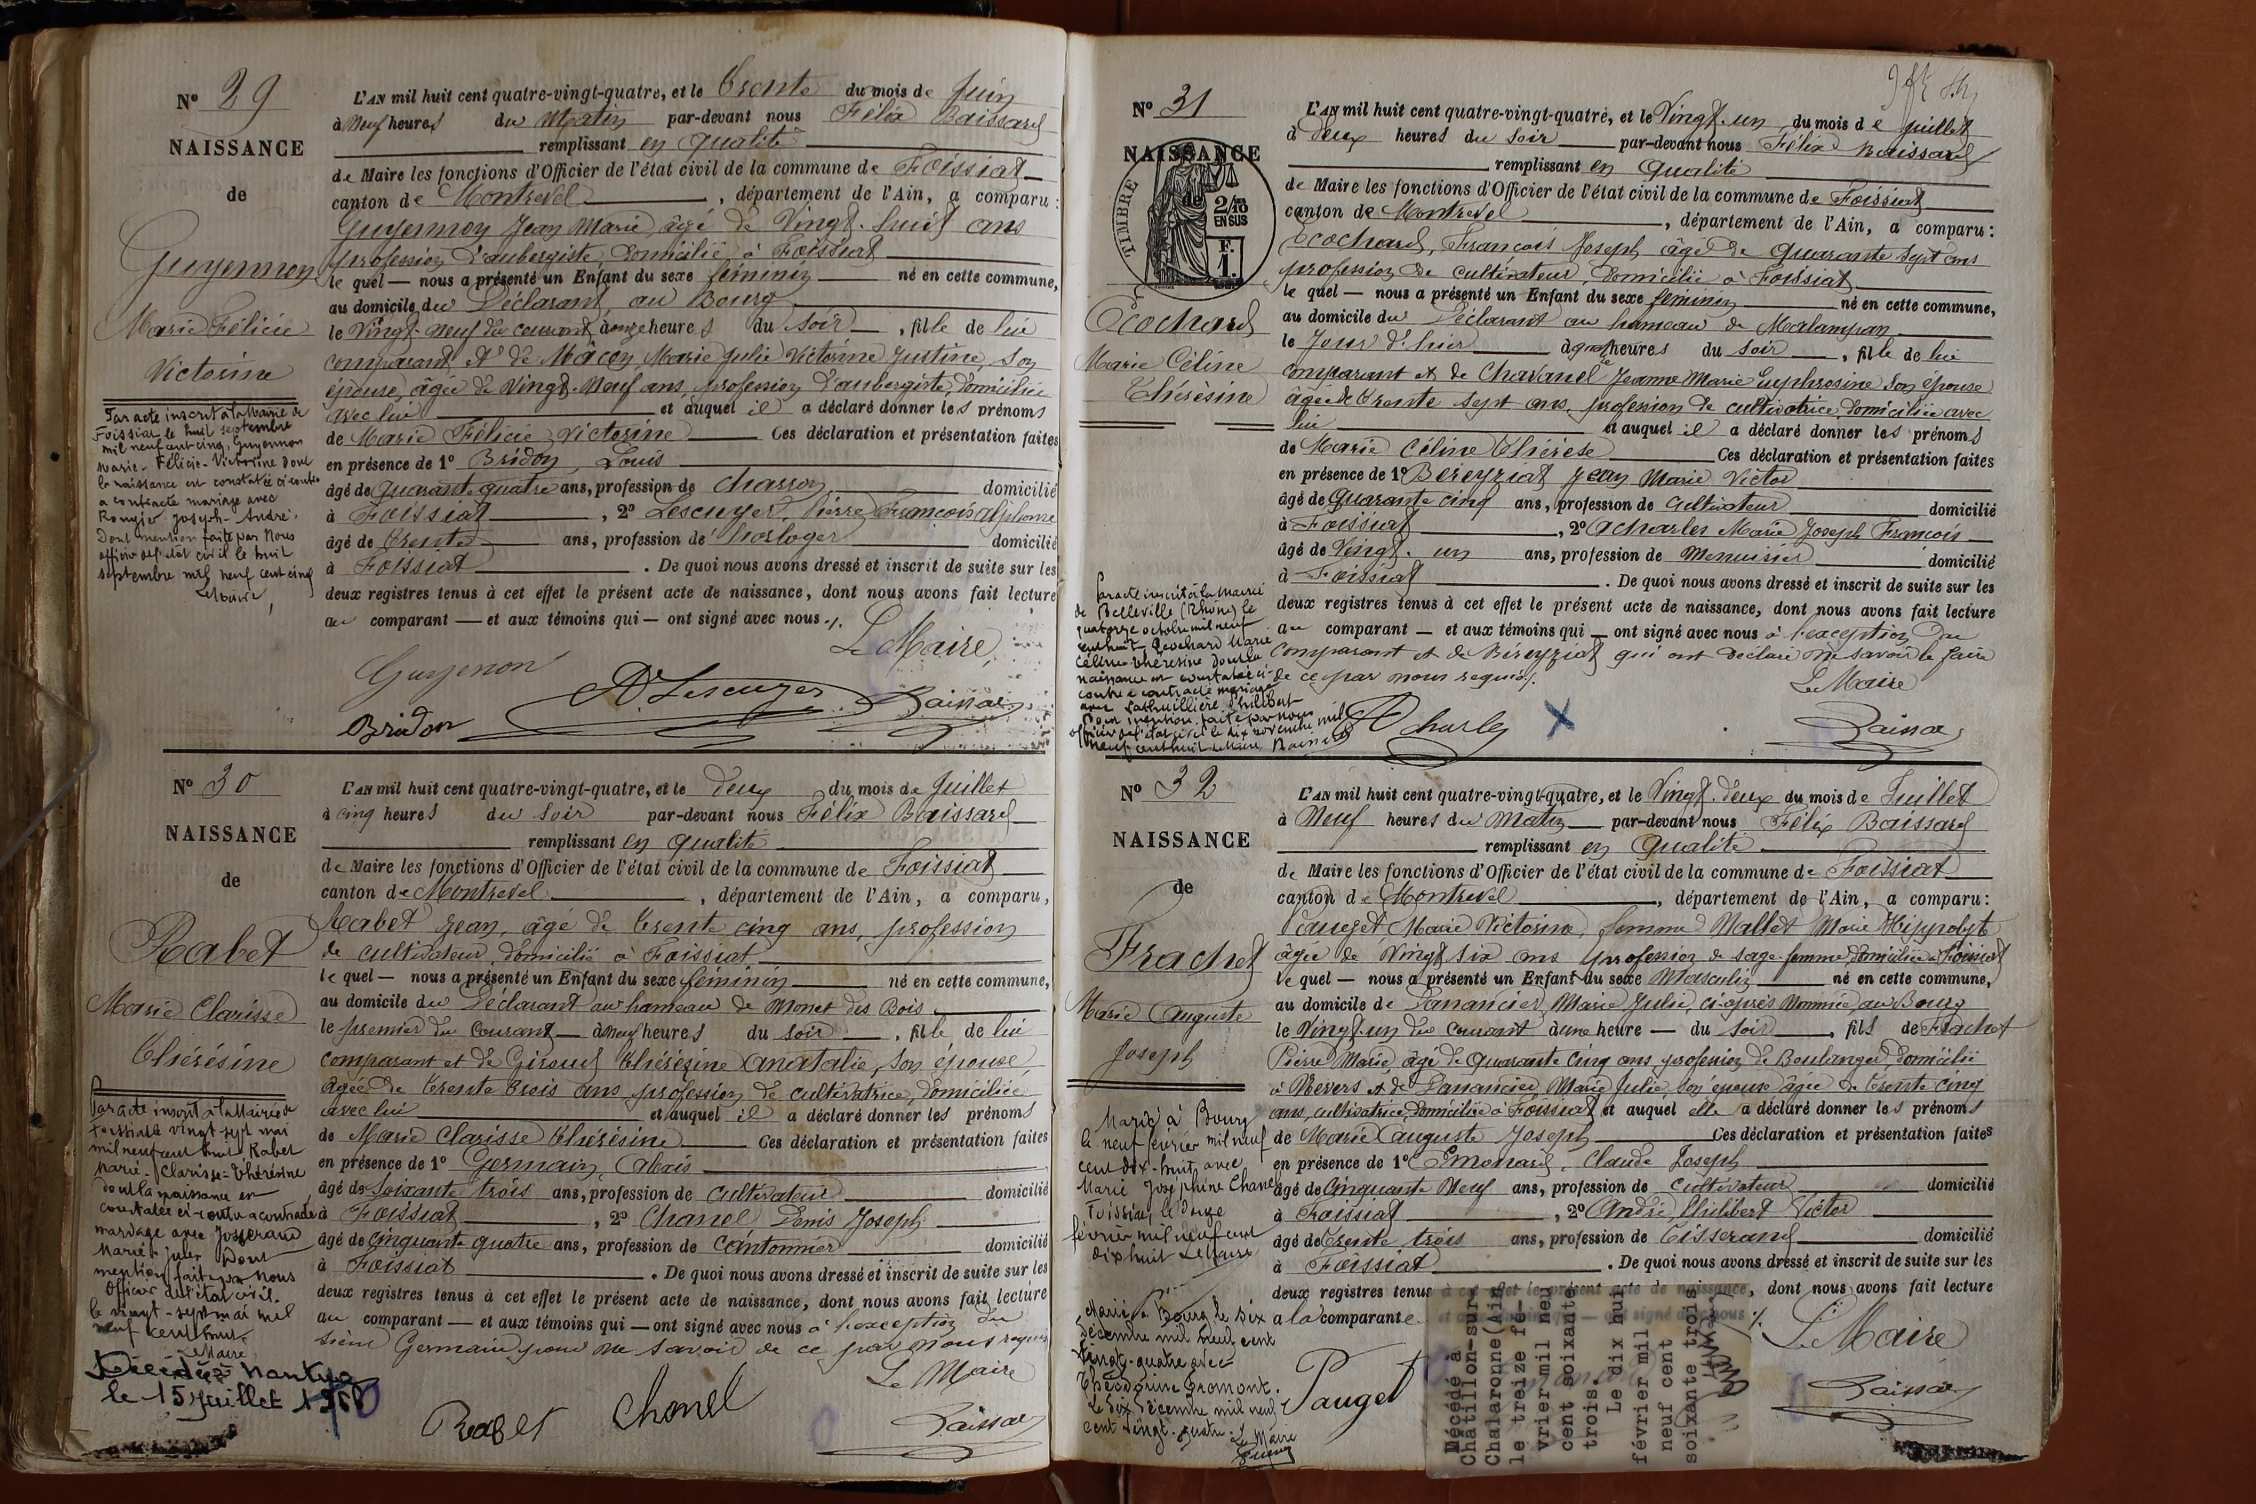 N° 29
NAISSANCE
de
Guyennon
Marie Félicie
Victorine
Par acte inscrit à la Mairie de
Foissiat le huit septembre
mil neuf cent cinq, Guyennon
Marie-Félicie-Victorine dont
la naissance est constatée ci-contre
a contracté mariage avec
Rougier Joseph-André.
Dont mention faite par Nous
officier de l'état civil le huit
septembre mil neuf cent cinq
Le Maire,
L'AN mil huit cent quatre-vingt-quatre, et le Trente du mois de Juin
à Neuf heures du Matin par-devant nous Félix Baissard
remplissant en qualité
de Maire les fonctions d'Officier de l'état civil de la commune de Foissiat
canton de Montrevel, département de l'Ain, a comparu :
Guyennon Jean Marie âgé de Vingt-huit ans
profession d'aubergiste, domicilié à Foissiat
le quel — nous a présenté un Enfant du sexe féminin né en cette commune,
au domicile du Déclarant au Bourg
le Vingt-neuf du courant à onze heures du soir, fille de lui
comparant et de Mâcon Marie Julie Victorine Justine, son
épouse, âgée de Vingt-Neuf ans, profession d'aubergiste, domiciliée
avec lui et auquel il a déclaré donner les prénoms
de Marie Félicie Victorine Ces déclaration et présentation faites
en présence de 1° Bridon, Louis
âgé de quarante quatre ans, profession de charron domicilié
à Foissiat, 2° Lescuyer, Pierre François Alphonse
âgé de trente ans, profession de horloger domicilié
à Foissiat. De quoi nous avons dressé et inscrit de suite sur les
deux registres tenus à cet effet le présent acte de naissance, dont nous avons fait lecture
au comparant — et aux témoins qui — ont signé avec nous ./.
Le Maire,
Guyenon
Bridon
A Lescuyer
Baissard
N° 30
NAISSANCE
de
Rabet
Marie Clarisse
Thérésine
Par acte inscrit à la Mairie de
Foissiat le vingt-sept mai
mil neuf cent huit, Rabet
Marie-Clarisse-Thérésine
dont la naissance est
constatée ci-contre a contracté
mariage avec Josserand
Marie Jules Dont
mention faite par Nous
Officier de l'état civil.
le vingt-sept mai mil
neuf cent huit.
Le Maire
Décédée à Nantua
le 15 Juillet
L'AN mil huit cent quatre-vingt-quatre, et le deux du mois de Juillet
à cinq heures du soir par-devant nous Félix Baissard
remplissant en qualité
de Maire les fonctions d'Officier de l'état civil de la commune de Foissiat
canton de Montrevel, département de l'Ain, a comparu,
Rabet Jean, âgé de trente cinq ans, profession
de cultivateur, domicilié à Foissiat
le quel — nous a présenté un Enfant du sexe féminin né en cette commune,
au domicile du Déclarant au hameau de Monet des Bois
le premier du Courant à Neuf heures du soir, fille de lui
comparant et de Giroud Thérésine Anatalie, son épouse
âgée de trente trois ans, profession de cultivatrice, domiciliée
avec lui et auquel il a déclaré donner les prénoms
de Marie Clarisse Thérésine Ces déclaration et présentation faites
en présence de 1° Germain, Alexis
âgé de soixante trois ans, profession de cultivateur domicilié
à Foissiat, 2° Chanel Denis Joseph
âgé de cinquante quatre ans, profession de cantonnier domicilié
à Foissiat. De quoi nous avons dressé et inscrit de suite sur les
deux registres tenus à cet effet le présent acte de naissance, dont nous avons fait lecture
au comparant — et aux témoins qui — ont signé avec nous à l'exception du
sieur Germain pour ne savoir de ce par nous requis
Le Maire
Rabet
Chanel
Baissard
N° 31
NAISSANCE
de
TIMBRE
2/10
EN SUS
F.
1.
Ecochard
Marie Céline
Thérésine
Par acte inscrit à la Mairie
de Belleville (Rhône) le
quatorze octobre mil neuf
cent huit Ecochard Marie
Céline Thérésine dont la
naissance est constatée ci-
contre a contracté mariage
avec Lathuillière Philibert
Dont mention faite par nous
officier de l'état civil le dix novembre mil
neuf cent huit Le Maire
L'AN mil huit cent quatre-vingt-quatre, et le Vingt-un du mois de juillet
à deux heures du soir par-devant nous Félix Baissard
remplissant en qualité
de Maire les fonctions d'Officier de l'état civil de la commune de Foissiat
canton de Montrevel, département de l'Ain, a comparu :
Ecochard, François Joseph âgé de quarante sept ans
profession de cultivateur, domicilié à Foissiat
le quel — nous a présenté un Enfant du sexe féminin né en cette commune,
au domicile du Déclarant au hameau de
le Jour d'hier à heures du soir, fille de lui
comparant et de Chavanel Jeanne Marie Euphrosine son épouse
âgée de trente sept ans, profession de cultivatrice, domiciliée avec
lui et auquel il a déclaré donner les prénoms
de Marie Céline Thérèse Ces déclaration et présentation faites
en présence de 1° Béreyziat Jean Marie Victor
âgé de quarante cinq ans, profession de cultivateur domicilié
à Foissiat, 2° Acharles Marie Joseph François
âgé de Vingt-un ans, profession de menuisier domicilié
à Foissiat. De quoi nous avons dressé et inscrit de suite sur les
deux registres tenus à cet effet le présent acte de naissance, dont nous avons fait lecture
au comparant — et aux témoins qui — ont signé avec nous à l'exception du
comparant et de Béreyziat qui ont déclaré ne savoir le faire
de ce par nous requis ./.
Le Maire
Acharles
Baissard
N° 32
NAISSANCE
de
Frachet
Marie Auguste
Joseph
Marié à Bourg
le neuf février mil neuf
cent dix-huit avec
Marie Joséphine Chanel
Foissiat, le douze
février mil neuf cent
dix huit Le Maire
Marié à Bourg le six
décembre mil neuf cent
vingt-quatre avec
Théodorine Fromont.
Le dix décembre mil neuf
cent vingt-quatre.
Le Maire
L'AN mil huit cent quatre-vingt-quatre, et le Vingt-deux du mois de Juillet
à Neuf heures du Matin par-devant nous Félix Baissard
remplissant en qualité
de Maire les fonctions d'Officier de l'état civil de la commune de Foissiat
canton de Montrevel, département de l'Ain, a comparu :
Pauget Marie Victorine, femme Mallet Marie Hippolyte
âgée de Vingt six ans profession de sage femme domiciliée à Foissiat
le quel — nous a présenté un Enfant du sexe Masculin né en cette commune,
au domicile de Panancier, Marie Julie, ci-après nommée, au Bourg
le Vingt-un du courant à une heure — du soir, fils de Frachet
Pierre Marie, âgé de quarante cinq ans, profession de Boulanger, domicilié
à Nevers et de Panancier Marie Julie, son épouse âgée de trente cinq
ans, cultivatrice, domiciliée à Foissiat et auquel elle a déclaré donner les prénoms
de Marie Auguste Joseph Ces déclaration et présentation faites
en présence de 1° Emonard, Claude Joseph
âgé de Cinquante Neuf ans, profession de Cultivateur domicilié
à Foissiat, 2° André Philibert Victor
âgé de trente trois ans, profession de Tisserand domicilié
à Foissiat. De quoi nous avons dressé et inscrit de suite sur les
deux registres tenus à cet effet le présent acte de naissance, dont nous avons fait lecture
à la comparante
Le Maire
Pauget
Baissard
Décédé à
Châtillon-sur-
Chalaronne(Ain
le treize fé-
vrier mil neu
cent soixante
trois
Le dix hui
février mil
neuf cent
soixante trois